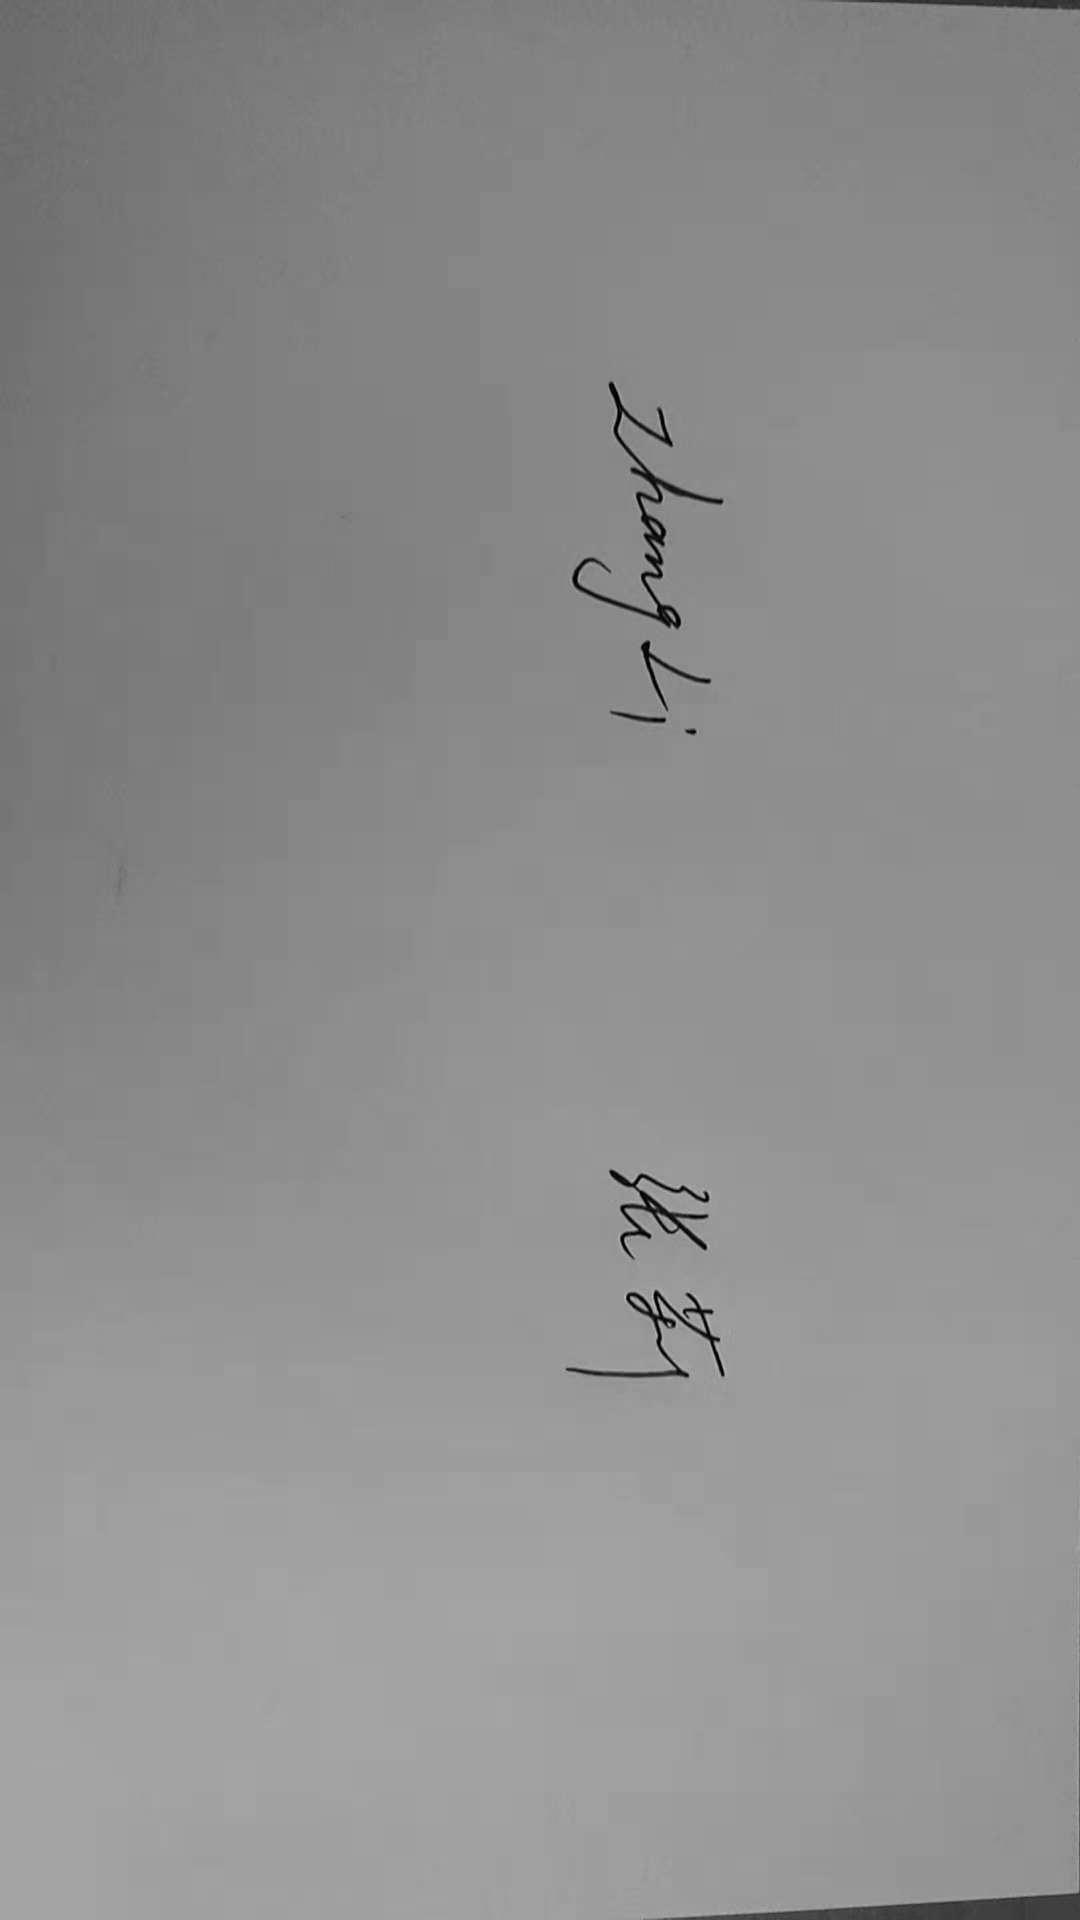 Zhang Li
张莉